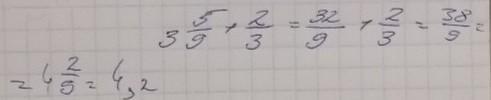 3 5/9 + 2/3 = 32/9 + 2/3 = 38/9 =
= 4 2/9 = 4,2